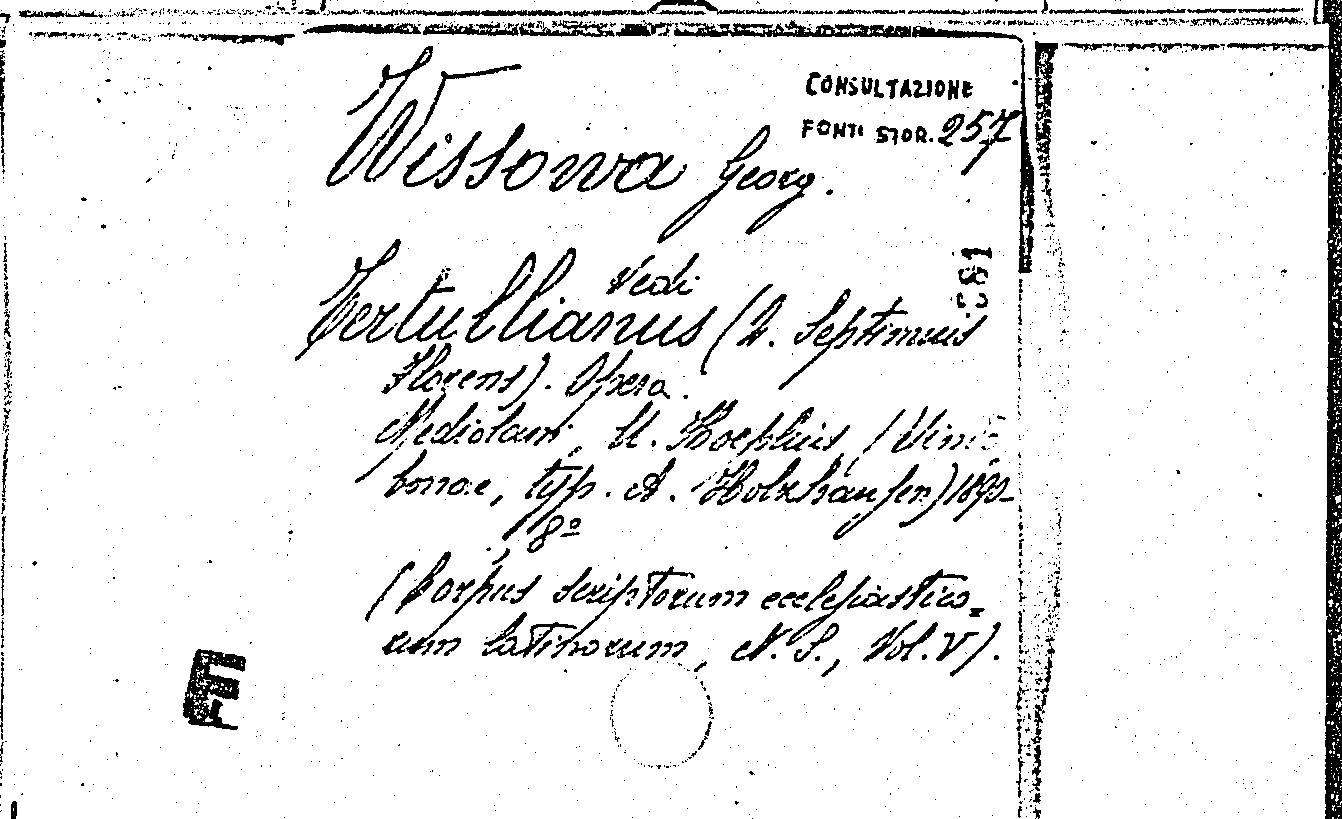 CONSULTAZIONE
FONTI STOR. 257
Wissowa Georg.
Vedi
Tertullianus (Q. Septimuis
Florens). Opera.
Mediolani, U. Hoeplius, (Vindo
bonae, typ. A. Holzhausen) 1890
, 8º
(Corpus scriptorum ecclesiastico=
rum latinorum, N. S., Vol. V).